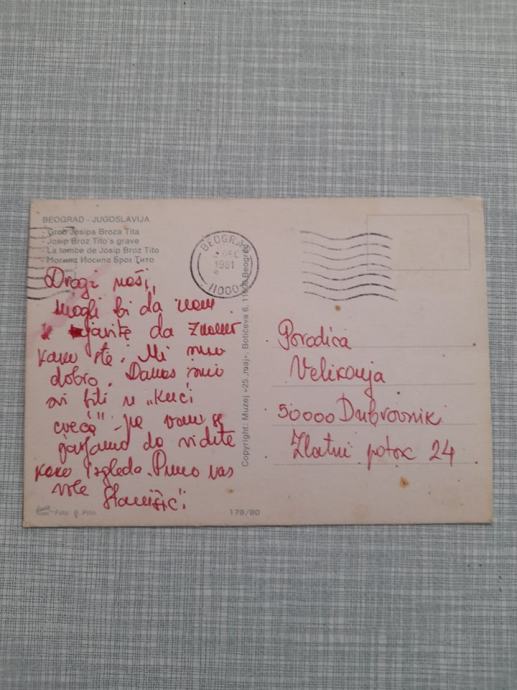 BEOGRAD - JUGOSLAVIJA
- Grob Josipa Broza Tita
- Josip Broz Tito's grave
- La tombe de Josip Broz Tito
- Могила Иосипа Броз Тито
Dragi naši,
mogli bi da nam
javite da znamo
kako ste. Mi smo
dobro. Danas smo
svi bili u „Kući
cveća" pa vam se
javljamo da vidite
kako izgleda. Puno vas
vole Stanišići
BEOGRAD
1981
11000
Copyright: Muzej »25. maj«, Botićeva 6, Beograd
Porodica
Velikonja
50000 Dubrovnik
Zlatni potok 24
178/80